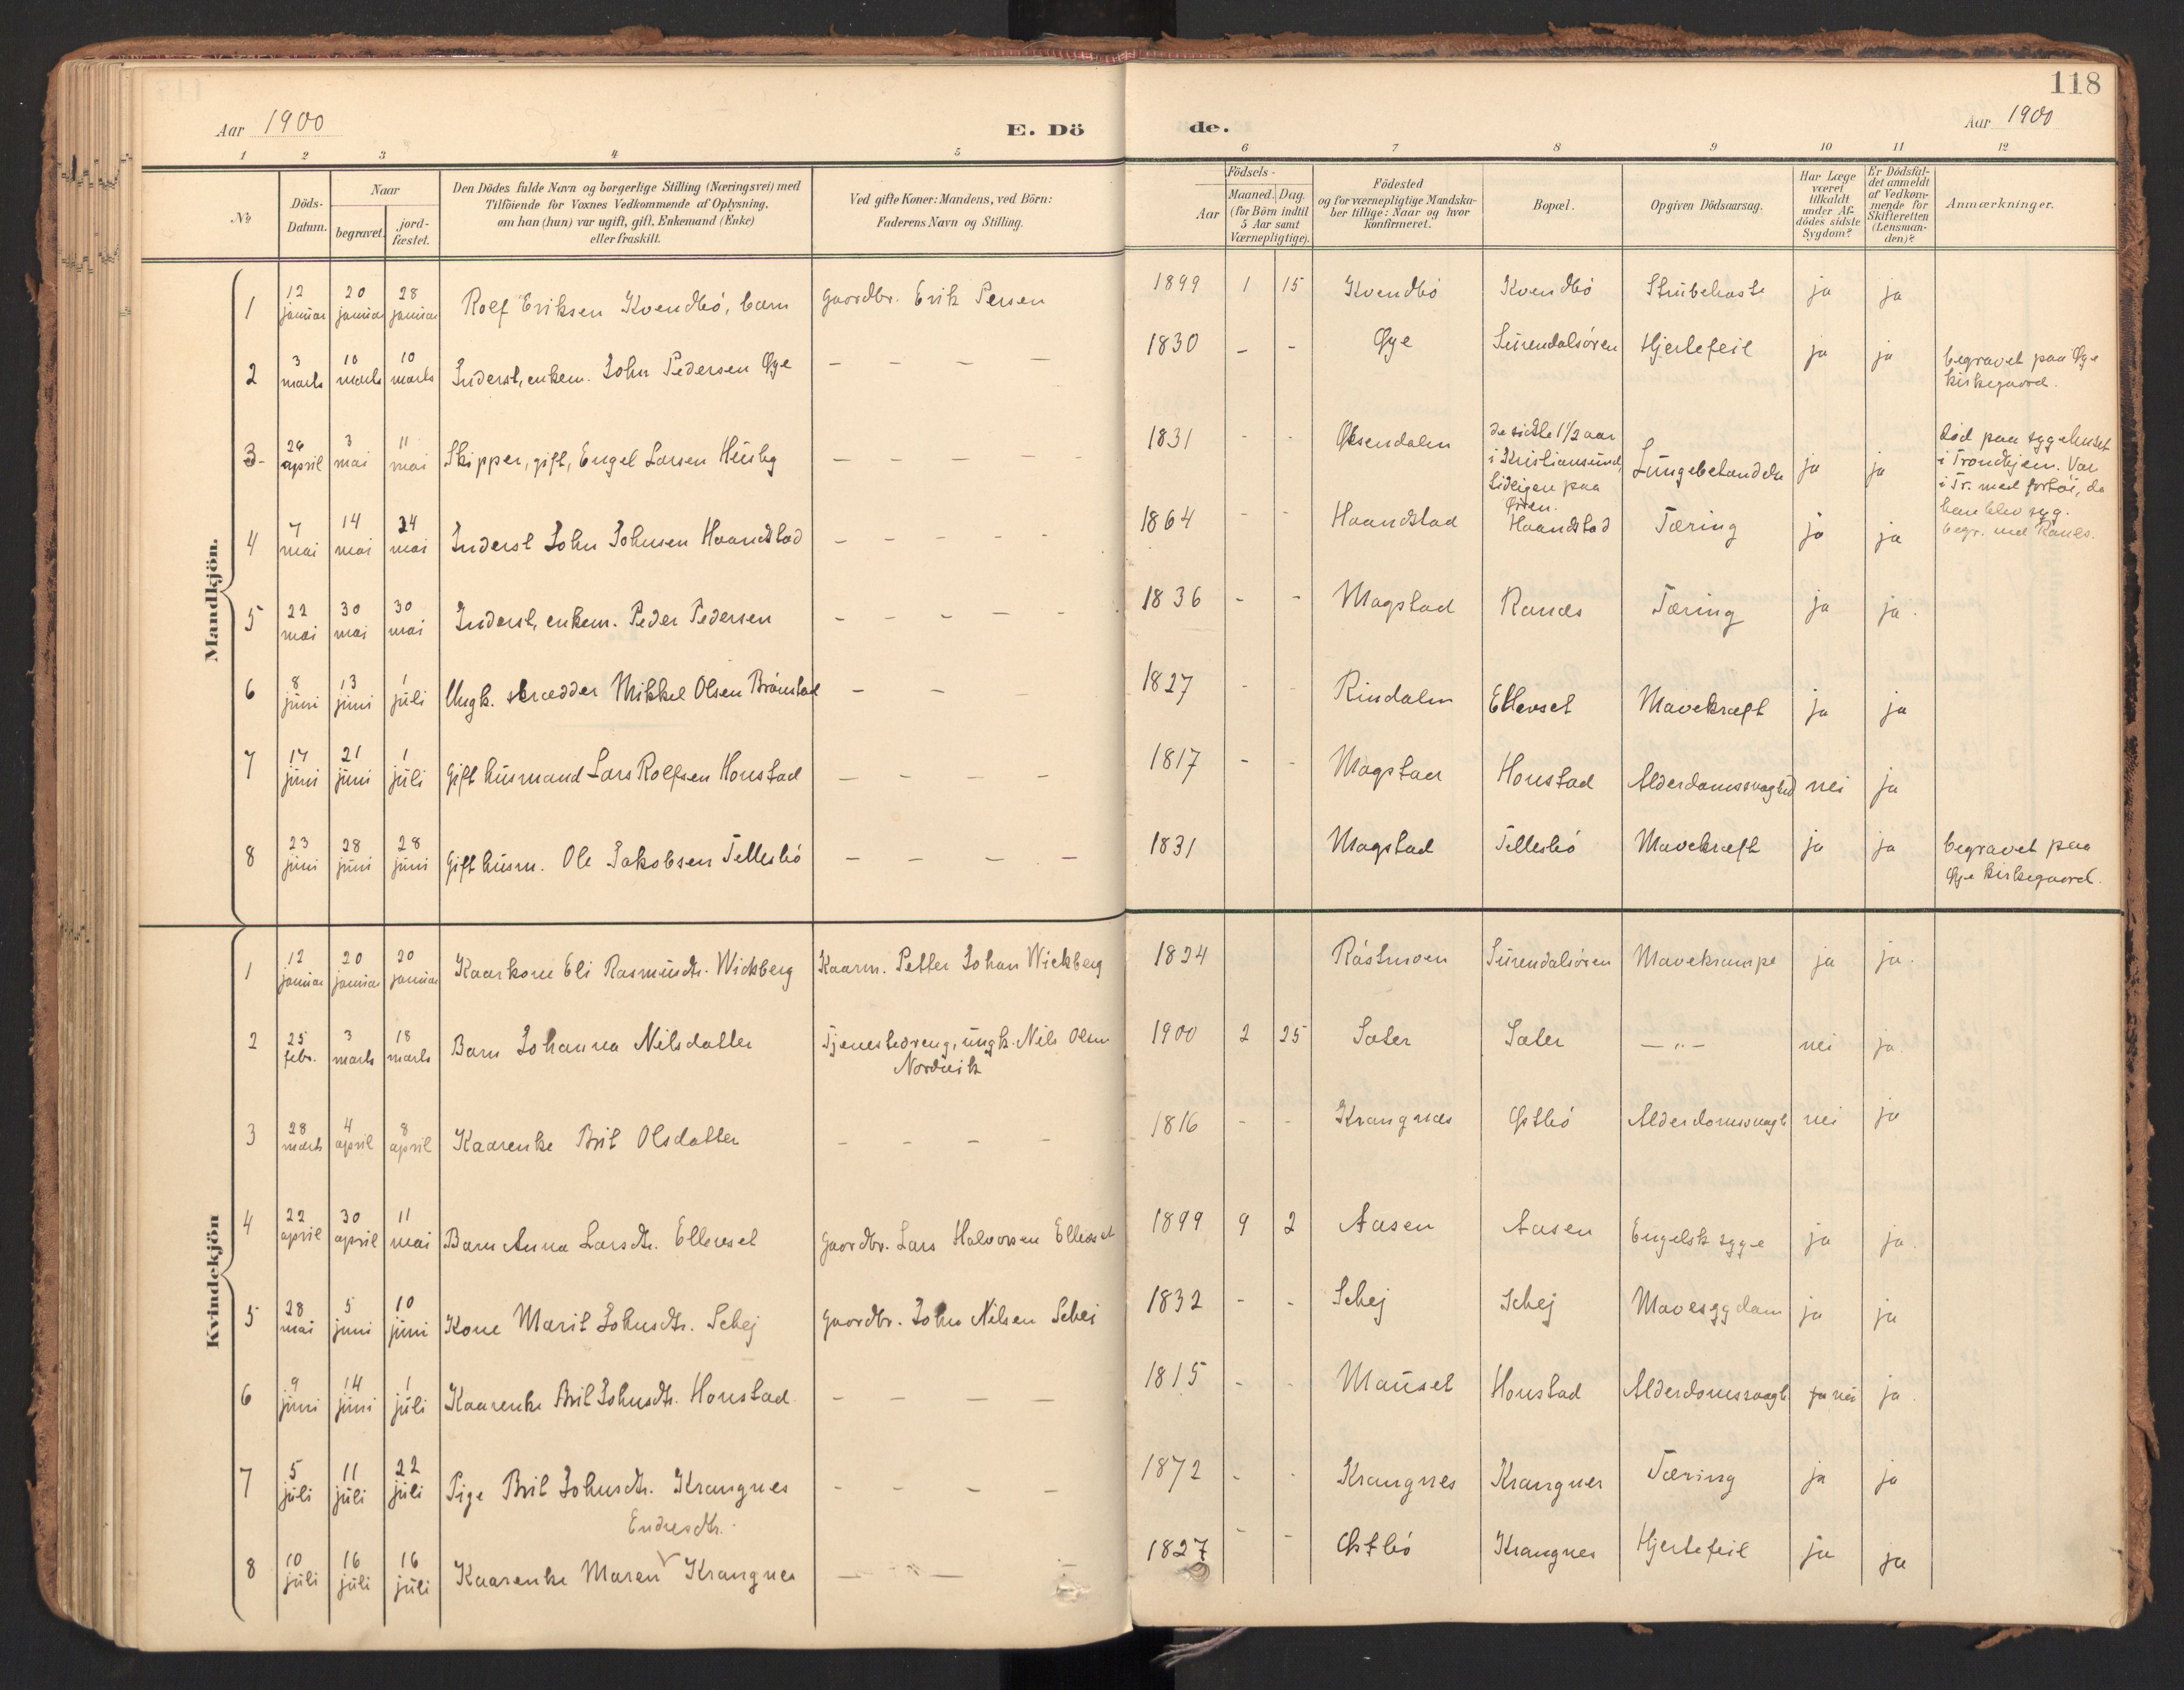 118
Aar 1900
E. Dö
de.
Aar 1900
1 2 3 4 5 6 7 8 9 10 11 12
No
Döds-Datum.
Naar
begravet.
jord-fæstet.
Den Dödes fulde Navn og borgerlige Stilling (Næringsvei) med
Tilföiende for Voxnes Vedkommende af Oplysning,
om han (hun) var ugift, gift, Enkemand (Enke)
eller fraskilt.
Ved gifte Koner: Mandens, ved Börn:
Faderens Navn og Stilling.
Födsels-
Aar
Maaned. Dag.
(for Börn indtil
5 Aar samt
Værnepligtige).
Födested
og for værnepligtige Mandska-
ber tillige: Naar og hvor
konfirmeret.
Bopæl.
Opgiven Dödsaarsag.
Har Læge
været
tilkaldt
under Af-
dödes sidste
Sygdom?
Er Dödsfal-
det anmeldt
af Vedkom-
mende for
Skifteretten
(Lensman-
den)?
Anmærkninger.
Mandkjön.
1 12 januar 20 januar 28 januar Rolf Eriksen Kvendbö, barn Gaardbr. Erik Persen 1899 1 15 Kvendbö Kvendbö Strubehoste ja ja
2 3 marts 10 marts 10 marts Inderst, enkem. John Pedersen Øye – – – – 1830 – – Øye Surendalsören Hjertefeil ja ja begravet paa Øye
kirkegaard.
3 26 april 3 mai 11 mai Skipper, gift, Engel Larsen Husby – – – – – 1831 - - Øksendalen de sidste 1 1/2 aar
i Kristiansund,
tidligere paa
Øren. Lungebetændelse ja ja död paa sygehuset
i Trondhjem. Var
i Tr. med fartöi, da
han blev syg.
begr. ved Ranes.
4 7 mai 14 mai 24 mai Inderst John Johnsen Haandstad – – – – – 1864 - - Haandstad Haandstad Tæring ja ja
5 22 mai 30 mai 30 mai Inderst, enkem. Peder Pedersen – – – – – 1836 - - Magstad Ranæs Tæring ja ja.
6 8 juni 13 juni 1 juli Ungk. skrædder Mikkel Olsen Brönstad – – – 1827 - - Rindalen Ellevset Mavekræft ja ja
7 14 juni 21 juni 1 juli Gift husmand Lars Rolfsen Honstad – – – – 1817 - - Magstad Honstad Alderdomssvaghed nei ja
8 23 juni 28 juni 28 juni Gift husm. Ole Jakobsen Tellesbö – – – – 1831 Magstad Tellesbö Mavekræft ja ja begravet paa
Øye kirkegaard.
Kvindekjön
1 12 januar 20 januar 20 januar Kaarkone Eli Rasmusdtr. Wickberg Kaarm. Petter Johan Wickberg 1824 Röstmoen Surendalsören Mavekrampe ja ja.
2 25 febr. 3 marts 18 marts Barn Johanna Nilsdatter Tjenestedreng, ungk. Nils Olsen
Nordvik 1900 2 25 Sæter Sæter – „ – nei ja
3 28 marts 4 april 8 april Kaarenke Brit Olsdatter – – – – 1816 - - Krangnæs Östbö Alderdomssvagh nei ja
4 22 april 30 april 11 mai Barn Anna Larsdtr. Ellevset Gaardbr. Lars Halvorsen Ellevset 1899 9 2 Aasen Aasen Engelsk syge ja ja.
5 28 mai 5 juni 10 juni Kone Marit Johnsdtr. Schej Gaardbr. John Nilsen Schei 1832 - - Schej Schej Mavesygdom ja ja
6 9 juni 14 juni 1 juli Kaarenke Brit Johnsdtr. Honstad – – – – 1815 - - Mauset Honstad Alderdomssvagh ja nei ja.
7 5 juli 11 juli 22 juli Pige Brit Johnsdtr. Krangnes – – – – 1872 - - Krangnes Krangnes Tæring ja ja
Endresdtr.
8 10 juli 16 juli 16 juli Kaarenke Maren √ Krangnes – – – – 1827 - - Östbö Krangnes Hjertefeil ja ja